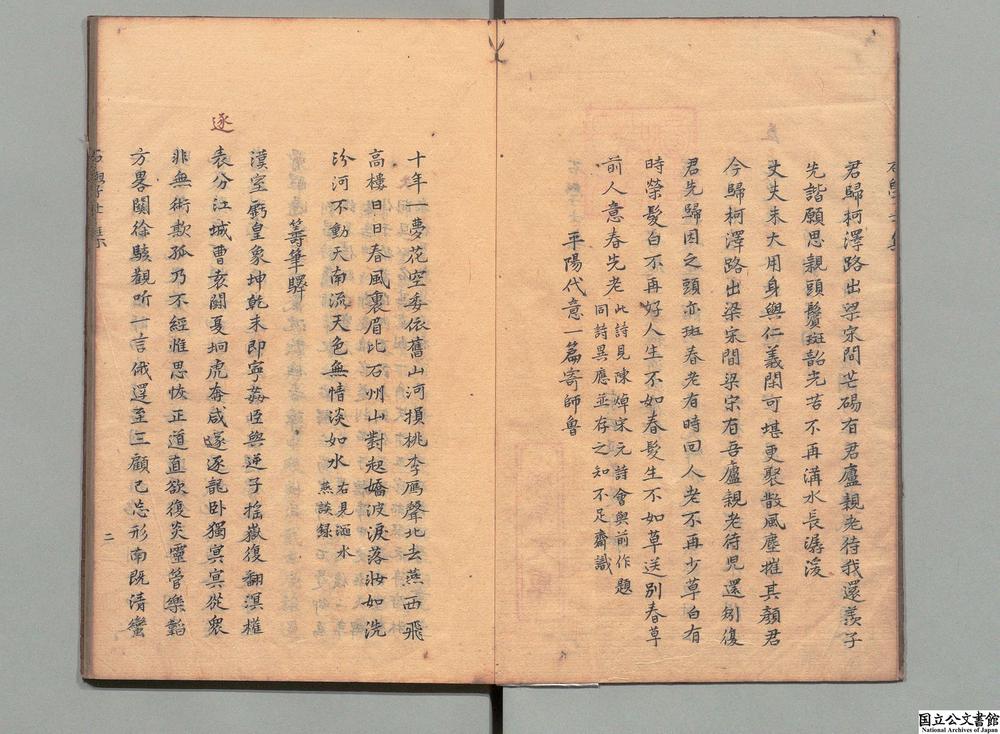 君歸柯澤路出梁宋間芒碭有君廬親老待我還羨子
先諧願思親頭鬢斑韶光苦不再溝水長潺湲
丈夫未大用身與仁義閑可堪更聚散風塵摧其顏君
今歸柯澤路出梁宋間梁宋有吾廬親老待兒還別復
君先歸因之頭亦斑春老有時回人老不再少草白有
時榮髮白不再好人生不如春髮生不如草送別春草
前人意春先老 此詩見陳焯宋元詩會與前作題
同詩異應並存之知不足齋識
平陽代意一篇寄師魯
十年一夢花空委依舊山河損桃李鴈聲北去燕西飛
高樓日日春風裏眉比石州山對起嬌波淚落妝如洗
汾河不動天南流天色無情淡如水 右見澠水
燕談録
籌筆驛
漢室虧皇象坤乾未即寧姦臣與逆子搖嶽復翻溟權
表分江城曹袁鬪夏坰虎奔咸遂逐龍卧獨冥冥從衆
逐
非無術欺孤乃不經惟思恢正道直欲復炎靈管樂韜
方畧關徐駭觀听一言俄遝至三顧已忘形南既清蠻
二
国立公文書館
National Archives of Japan